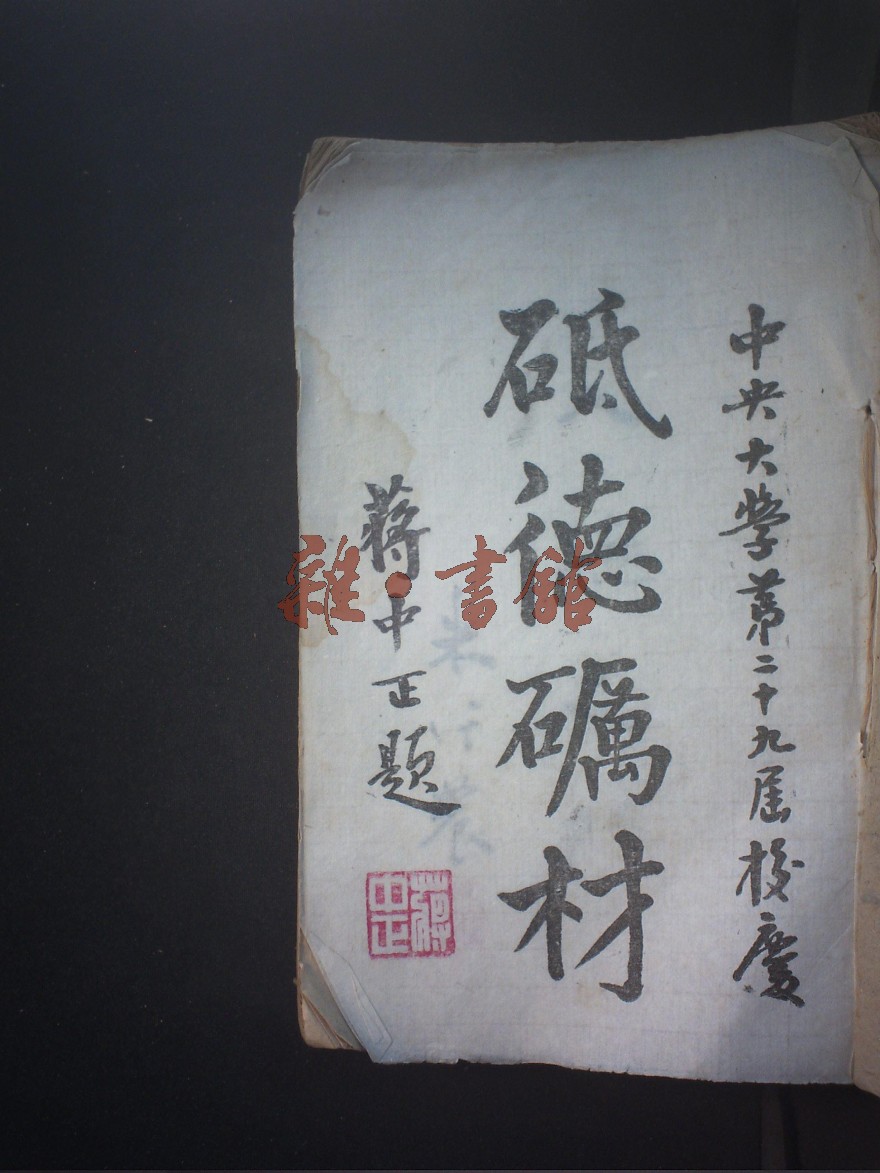 中央大学第二十九届校慶
砥德礪材
蔣中正題
蔣中正
雜·書館